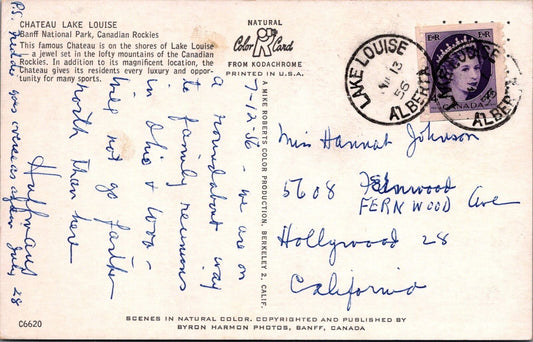 CHATEAU LAKE LOUISE
Banff National Park, Canadian Rockies
This famous Chateau is on the shores of Lake Louise
— a jewel set in the lofty mountains of the Canadian
Rockies. In addition to its magnificent location, the
Chateau gives its residents every luxury and oppor-
tunity for many sports.
NATURAL
Color Card
FROM KODACHROME
PRINTED IN U.S.A.
LAKE LOUISE
13
56
ALBERTA
CANADA
7-12-56 - we are on
a roundabout way
to family reunions
in Ohio + Iowa -
will not go farther
north than here
Huffmans
P.S. goes overseas again July 28
A MIKE ROBERTS COLOR PRODUCTION, BERKELEY 2, CALIF.
Miss Hannah Johnson
5608 Fernwood
FERNWOOD Ave
Hollywood 28
California
SCENES IN NATURAL COLOR. COPYRIGHTED AND PUBLISHED BY
BYRON HARMON PHOTOS, BANFF, CANADA
C6620